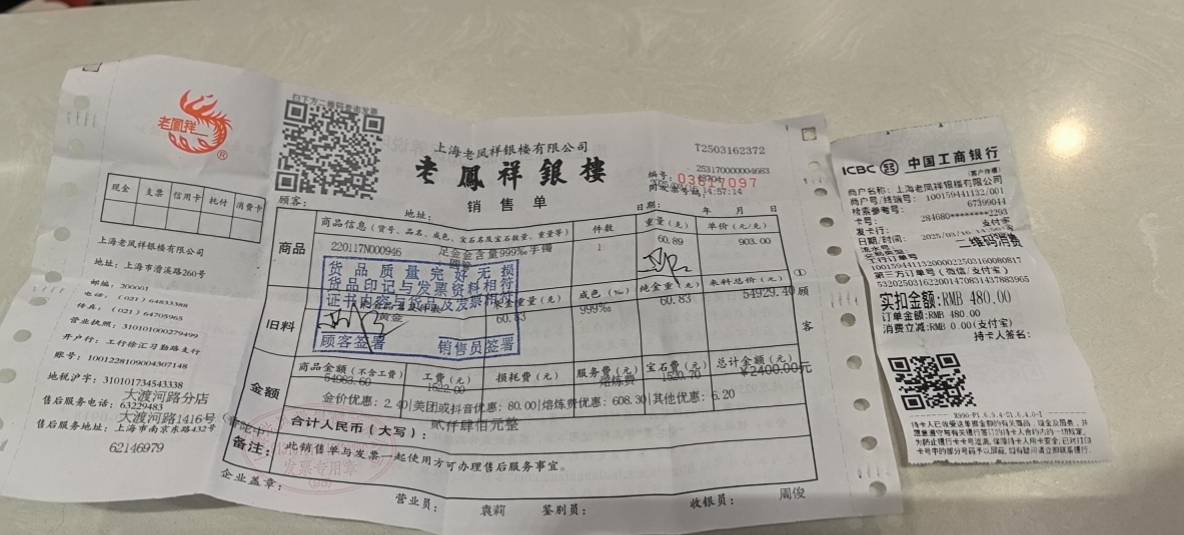 老鳳祥
®
上海老凤祥银楼有限公司
老鳳祥銀樓
销售单
T2503162372
编号:
2531700000004683
03617097
14:57:14
顾客:
地址:
日期: 年 月 日
现金 支票 信用卡 托付 消费卡
商品
商品信息(货号、品名、成色、宝石名及宝石数量、重量等) 件数 重量(克) 单价(元/克)
220117N000946 足金金含量999‰手镯 1 60.89 903.00
货品质量完好无损
货品印记与发票资料相符
证书内容与货品及发票相符
顾客签署 销售员签署
旧料
成色(‰) 纯金重(克) 来料总价(元)
黄金 60.83 999‰ 60.83 54929.40
①顾客
金额
商品金额(不含工费) 工费(元) 损耗费(元) 服务费(元) 宝石费(元) 总计金额(元)
54983.60 1522.00 熔炼费 1520.70 ¥2400.00元
金价优惠: 2.40|美团或抖音优惠: 80.00|熔炼费优惠: 608.30|其他优惠: 6.20
合计人民币(大写): 贰仟肆佰元整
备注: 此销售单与发票一起使用方可办理售后服务事宜。
发票专用章
企业盖章: 营业员: 袁莉 鉴别员: 收银员: 周俊
上海老凤祥银楼有限公司
地址: 上海市漕溪路260号
邮编: 200061
电话: (021) 64833388
传真: (021) 64705965
营业执照: 310101000279499
开户行: 工行徐汇习勤路支行
账号: 1001228109004307148
地税沪字: 310101734543338
大渡河路分店
售后服务电话: 63229483
大渡河路1416号
售后服务地址: 上海市南京东路432号
62146979
ICBC 中国工商银行
(客户存根)
商户名称: 上海老凤祥银楼有限公司
商户号/终端号: 10015944132/001
检索参考号: 67399044
卡号: 284680********2293
发卡行: 支付宝
日期/时间:
二维码消费
100159441132000022503160080817
第三方订单号(微信/支付宝)
53202503162200147083143788396​5
实扣金额:RMB 480.00
订单金额:RMB 480.00
消费立减:RMB 0.00(支付宝)
持卡人签名: